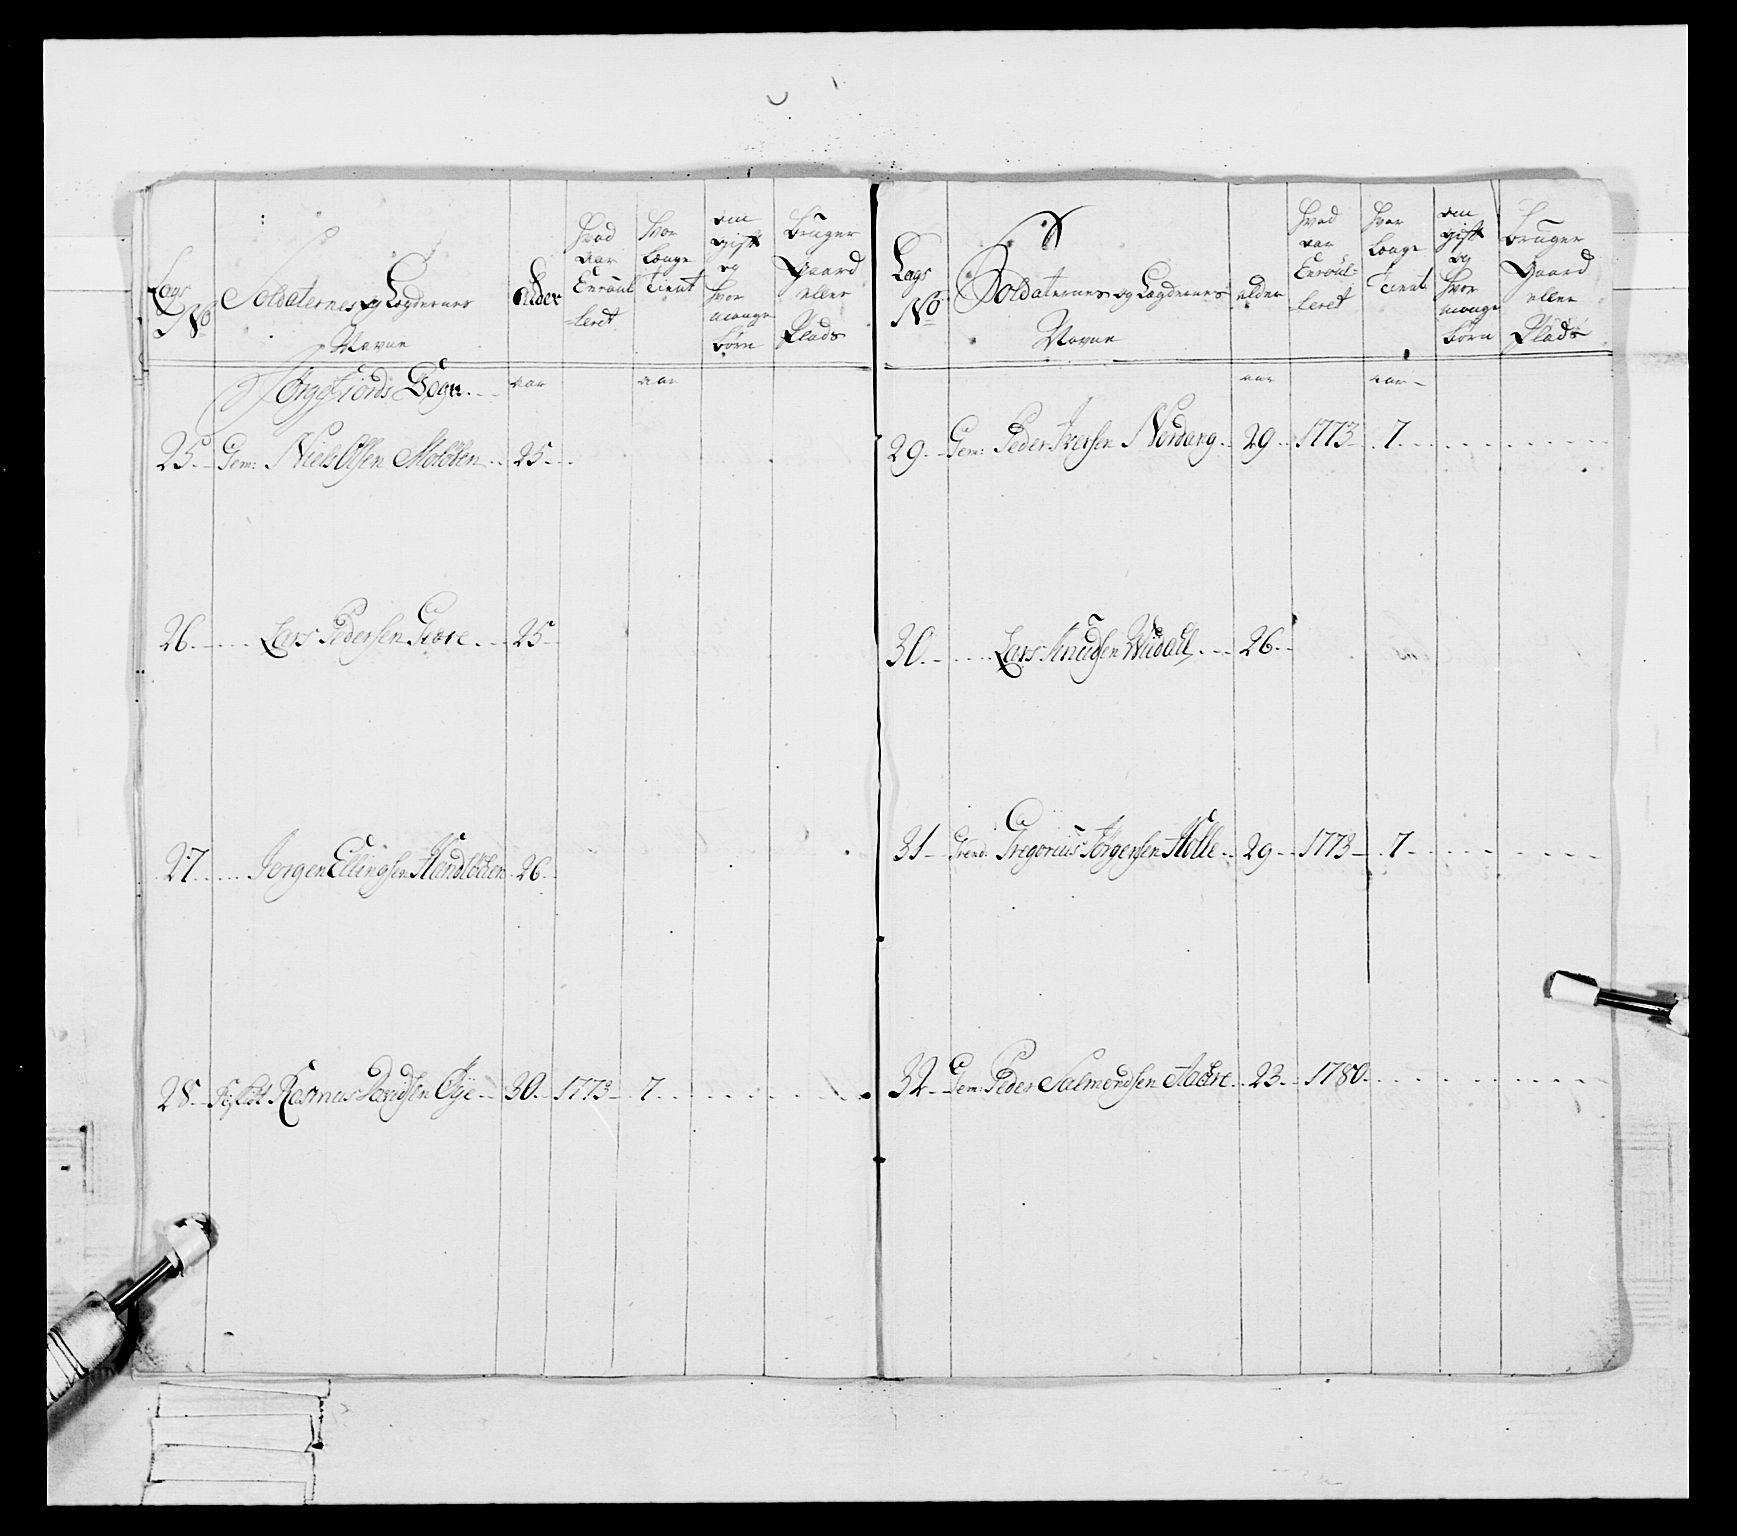 Lags No
Soldaternes og Lægdernes Navne
Alder
Hvad aar Enroulleret
Hvor Længe Tient
om gift og hvor mange børn
Bruger Gaard eller Plads
Sogn
aar
aar
25 Gem: Niels Olsen 25
26 Lars Pedersen 25
27 Jørgen Ellingsen 26
28 Rasmus Davidsen Øye 30 1773 7
Lags No
Soldaternes og Lægdernes Navne
alder
Hvad aar Enroulleret
Hvor Længe Tient
om gift og hvor mange børn
Bruger Gaard eller Plads
aar
aar
29 Gem: Peder Iversen Nordang 29 1773 7
30 Lars Knudsen 26
31 Grend: Gregorius Jørgensen Molle 29 1773 7
32 Gem: Peder Salmondsen 23 1780